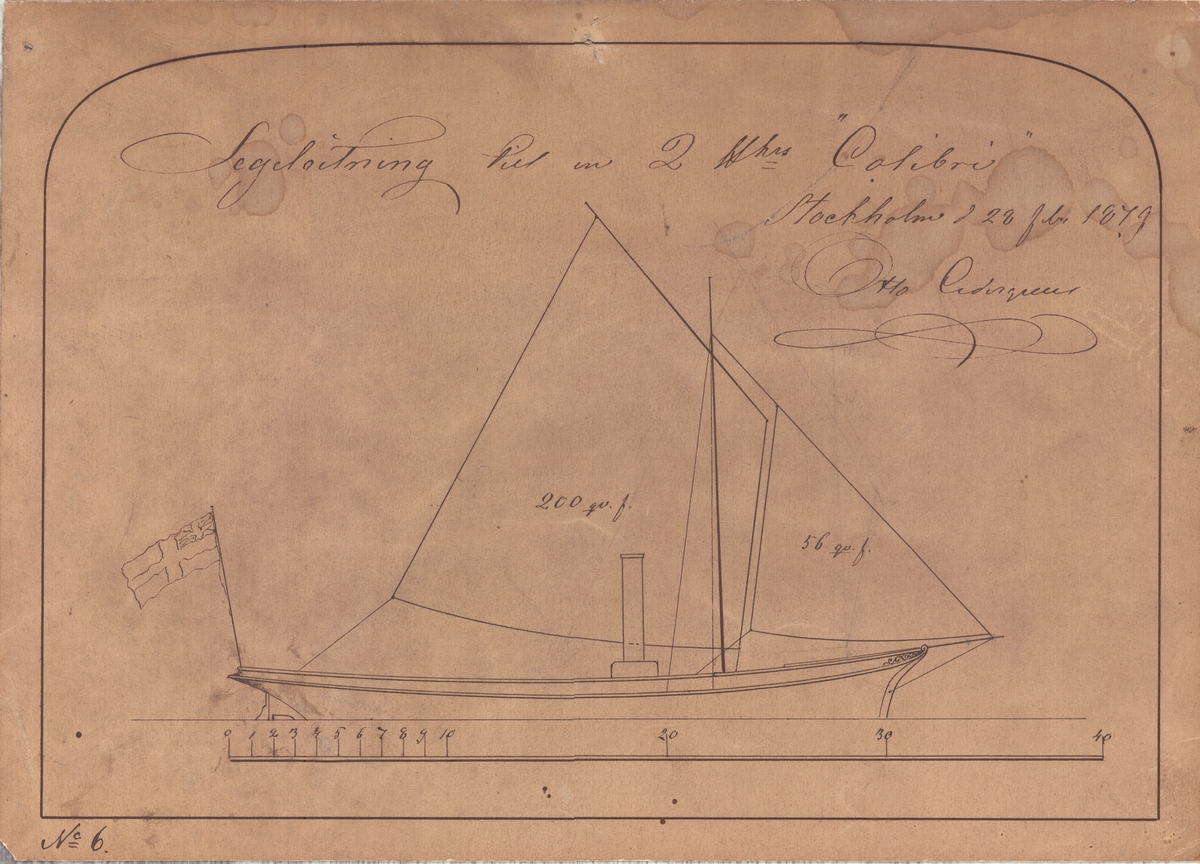 Segelritning till en 2 Hkrs "Colibri"
Stockholm d 28 febr 1879
Otto Cedergreen
200 qv. f.
56 qv. f.
0 1 2 3 4 5 6 7 8 9 10 20 30 40
No 6.